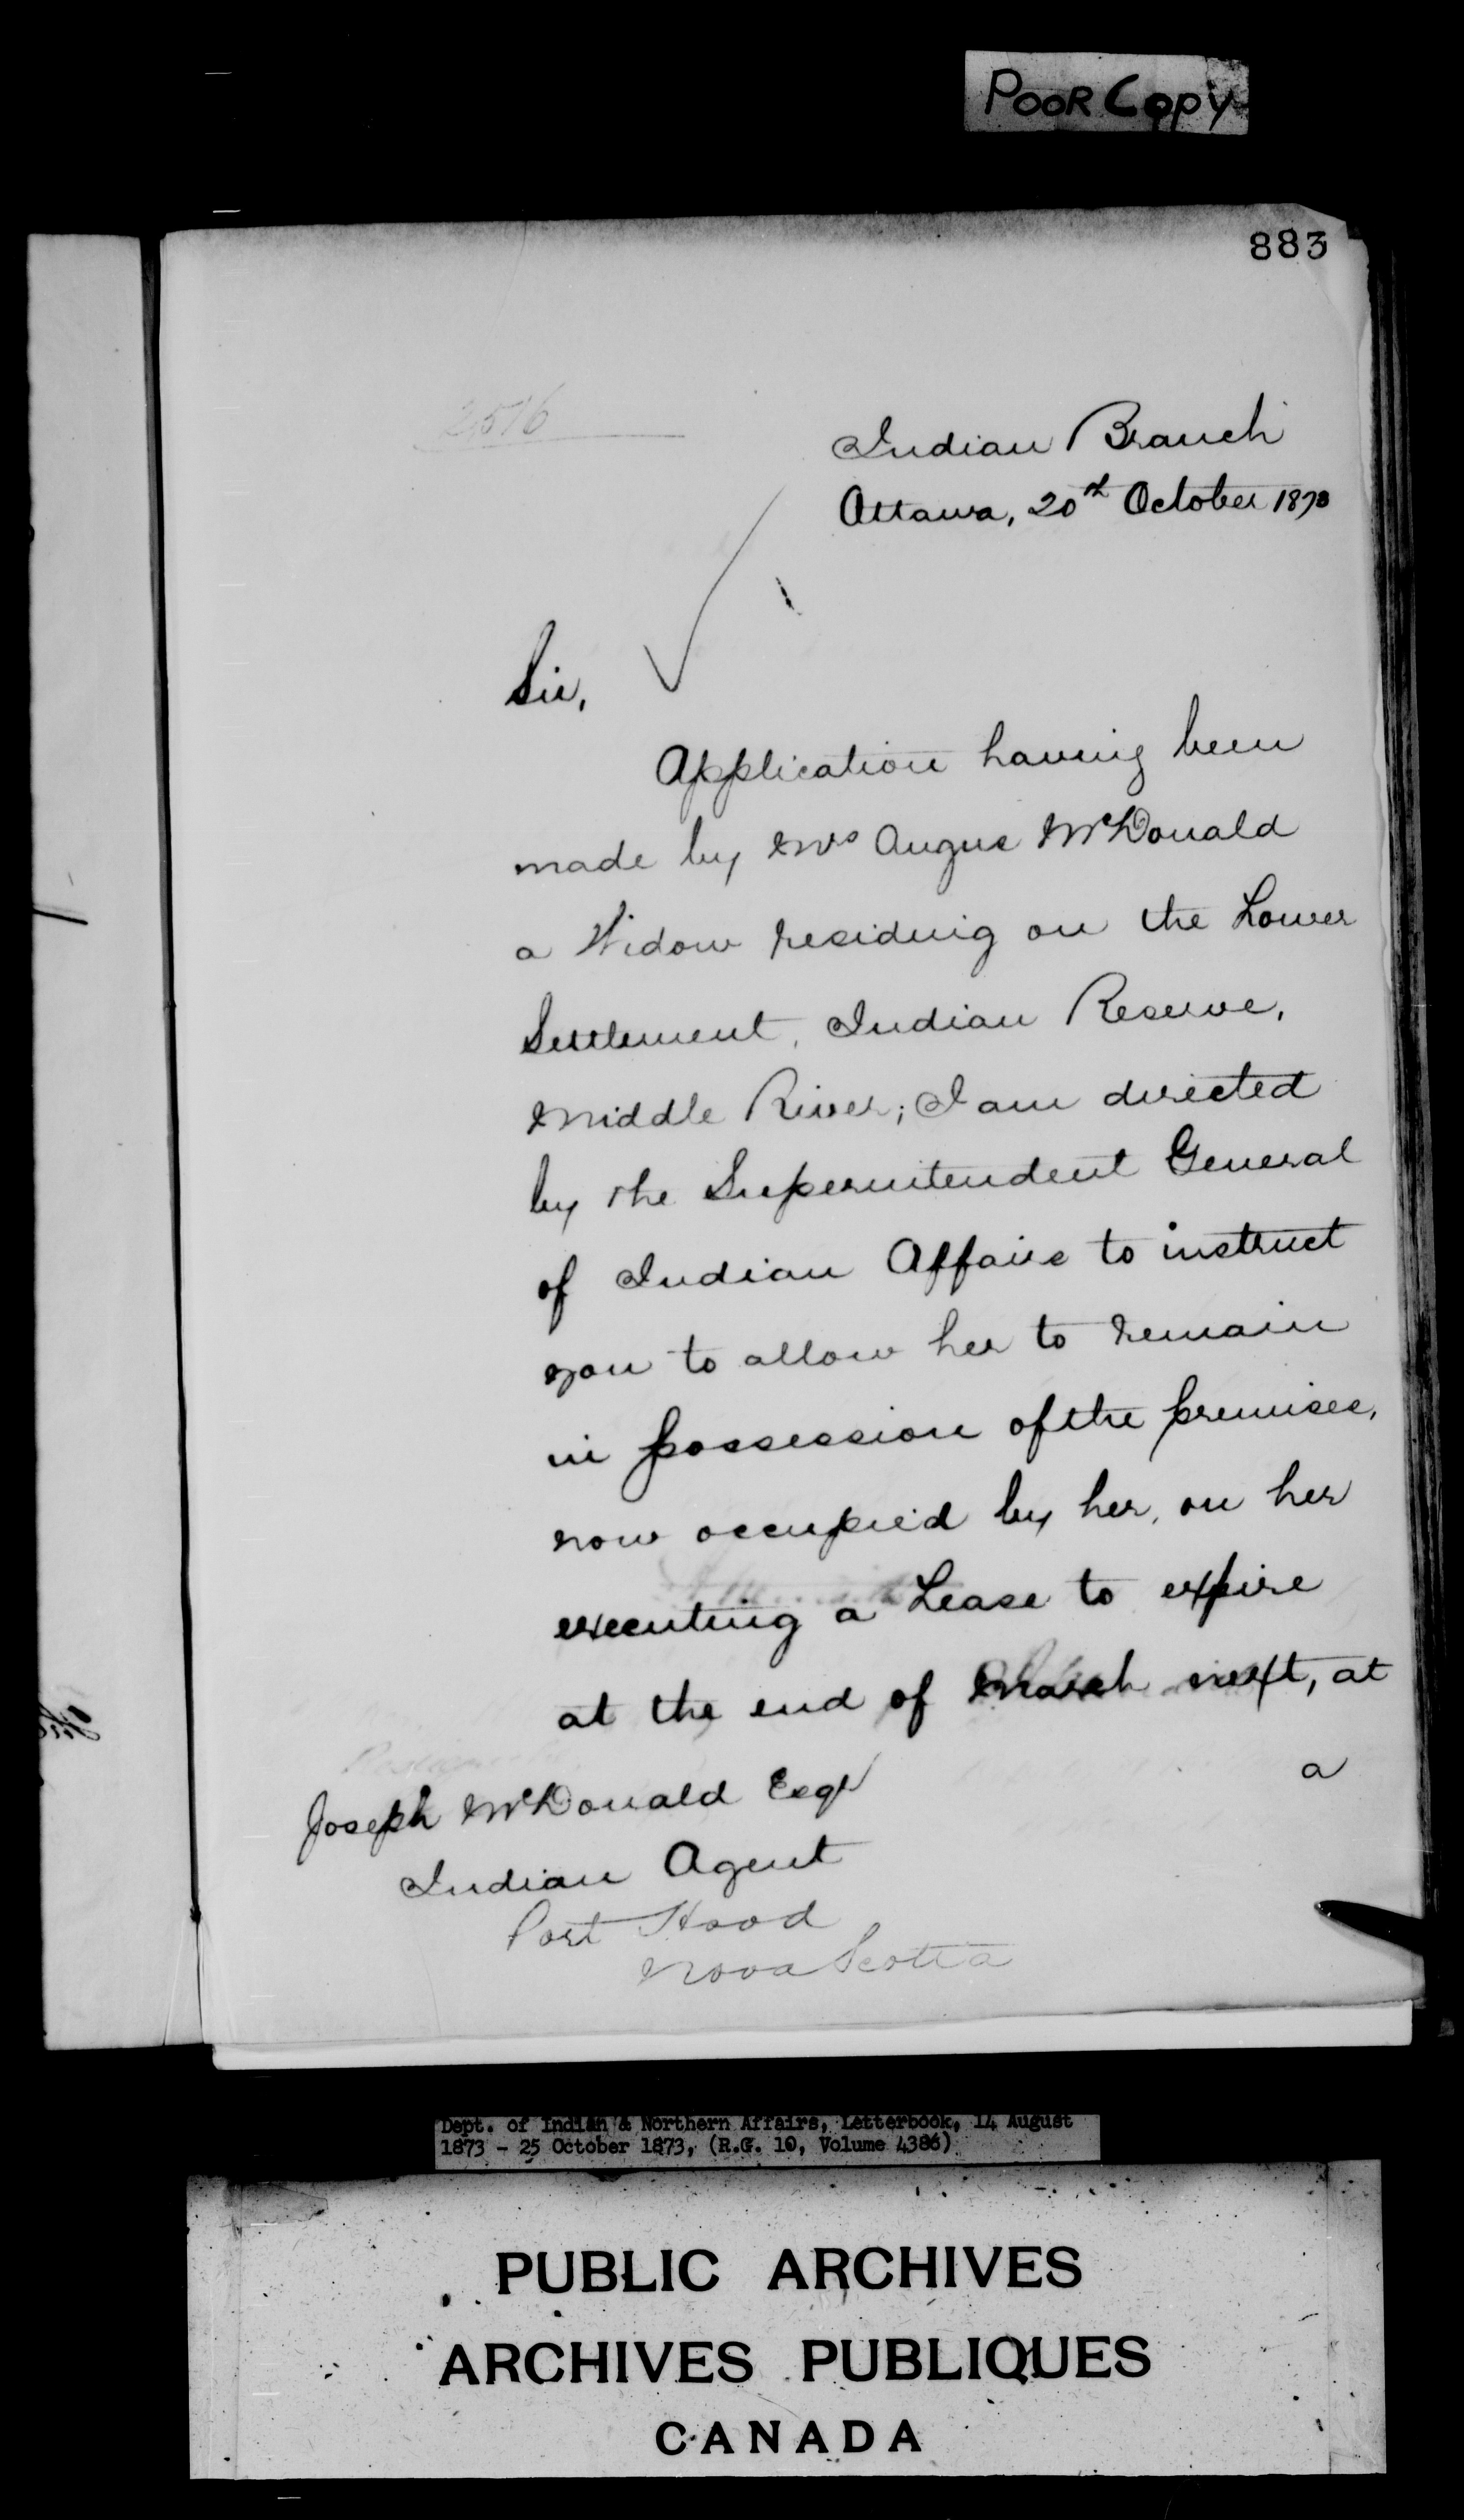 POOR Copy
883
2516
Indian Branch
Ottawa, 20th October 1873
Sir,
Application having been
made by Mrs Angus McDonald
a Widow residing on the Lower
Settlement, Indian Reserve,
Middle River; I am directed
by the Superintendent General
of Indian Affairs to instruct
you to allow her to remain
in possession of the premises,
now occupied by her, on her
executing a Lease to expire
at the end of March next, at
a
Joseph McDonald Esqr
Indian Agent
Port Hood
Nova Scotia
Dept. of Indian & Northern Affairs, Letterbook, 14 August
1873 - 25 October 1873, (R.G. 10, Volume 4386)
PUBLIC ARCHIVES
ARCHIVES PUBLIQUES
CANADA